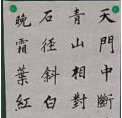 天門中斷
青山相對
石徑斜白
晚霜葉紅